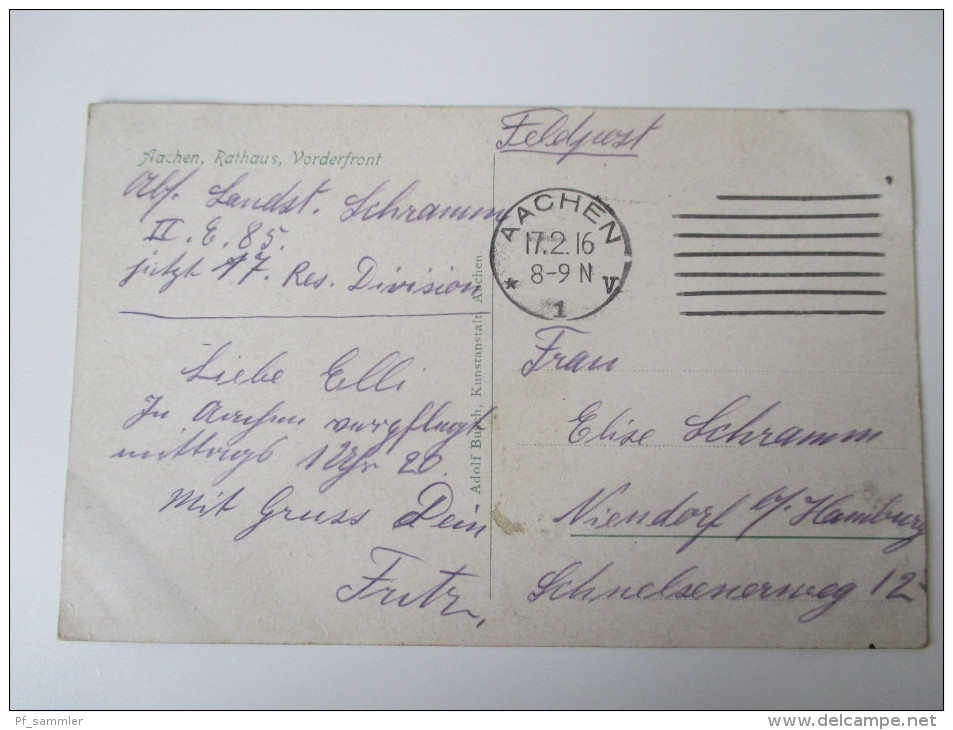 Feldpost
Aachen, Rathaus, Vorderfront
Abs. Landst. Schramm
II. E. 85.
jetzt 17. Res. Division
AACHEN
17.2.16
8-9 N
* 1 V.
Liebe Elli
In Aachen verpflegt
mittags 1 Uhr 20.
Mit Gruss Dein
Fritz.
Adolf Busch, Kunstanstalt, Aachen.
Frau
Elise Schramm
Niendorf b/Hamburg
Schnelsenerweg 12
Pf_sammler
www.delcampe.net